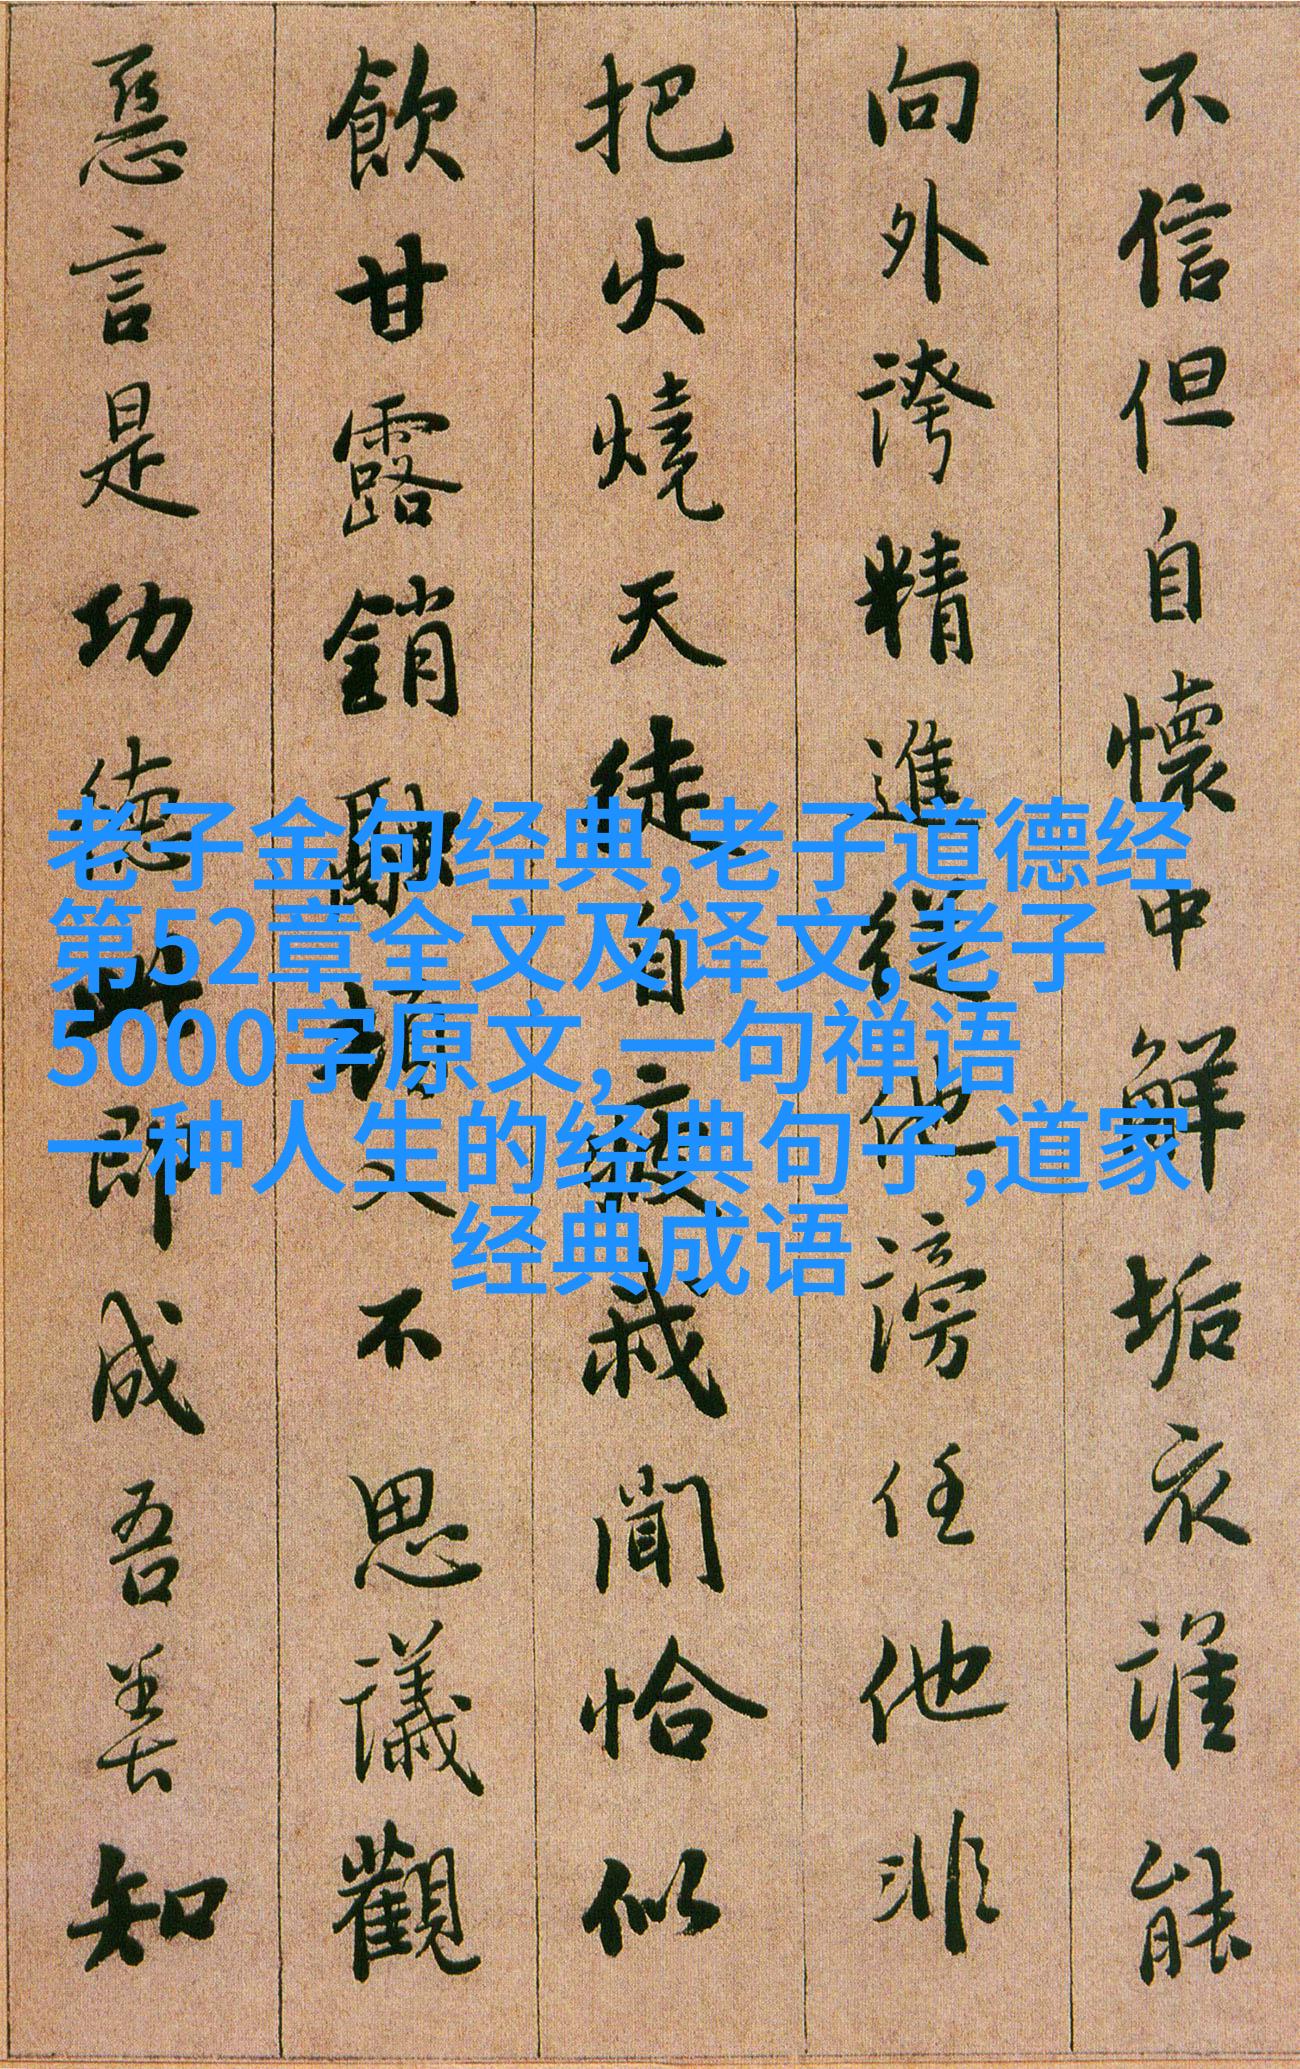 不信但自懷中解垢衣誰能
向外誇精進從他謗任他非
把火燒天徒自疲我聞恰似
飲甘露銷融頓入不思議觀
惡言是功德此即成吾善知
老子金句经典,老子道德经
第52章全文及译文,老子
5000字原文,一句禅语
一种人生的经典句子,道家
经典成语